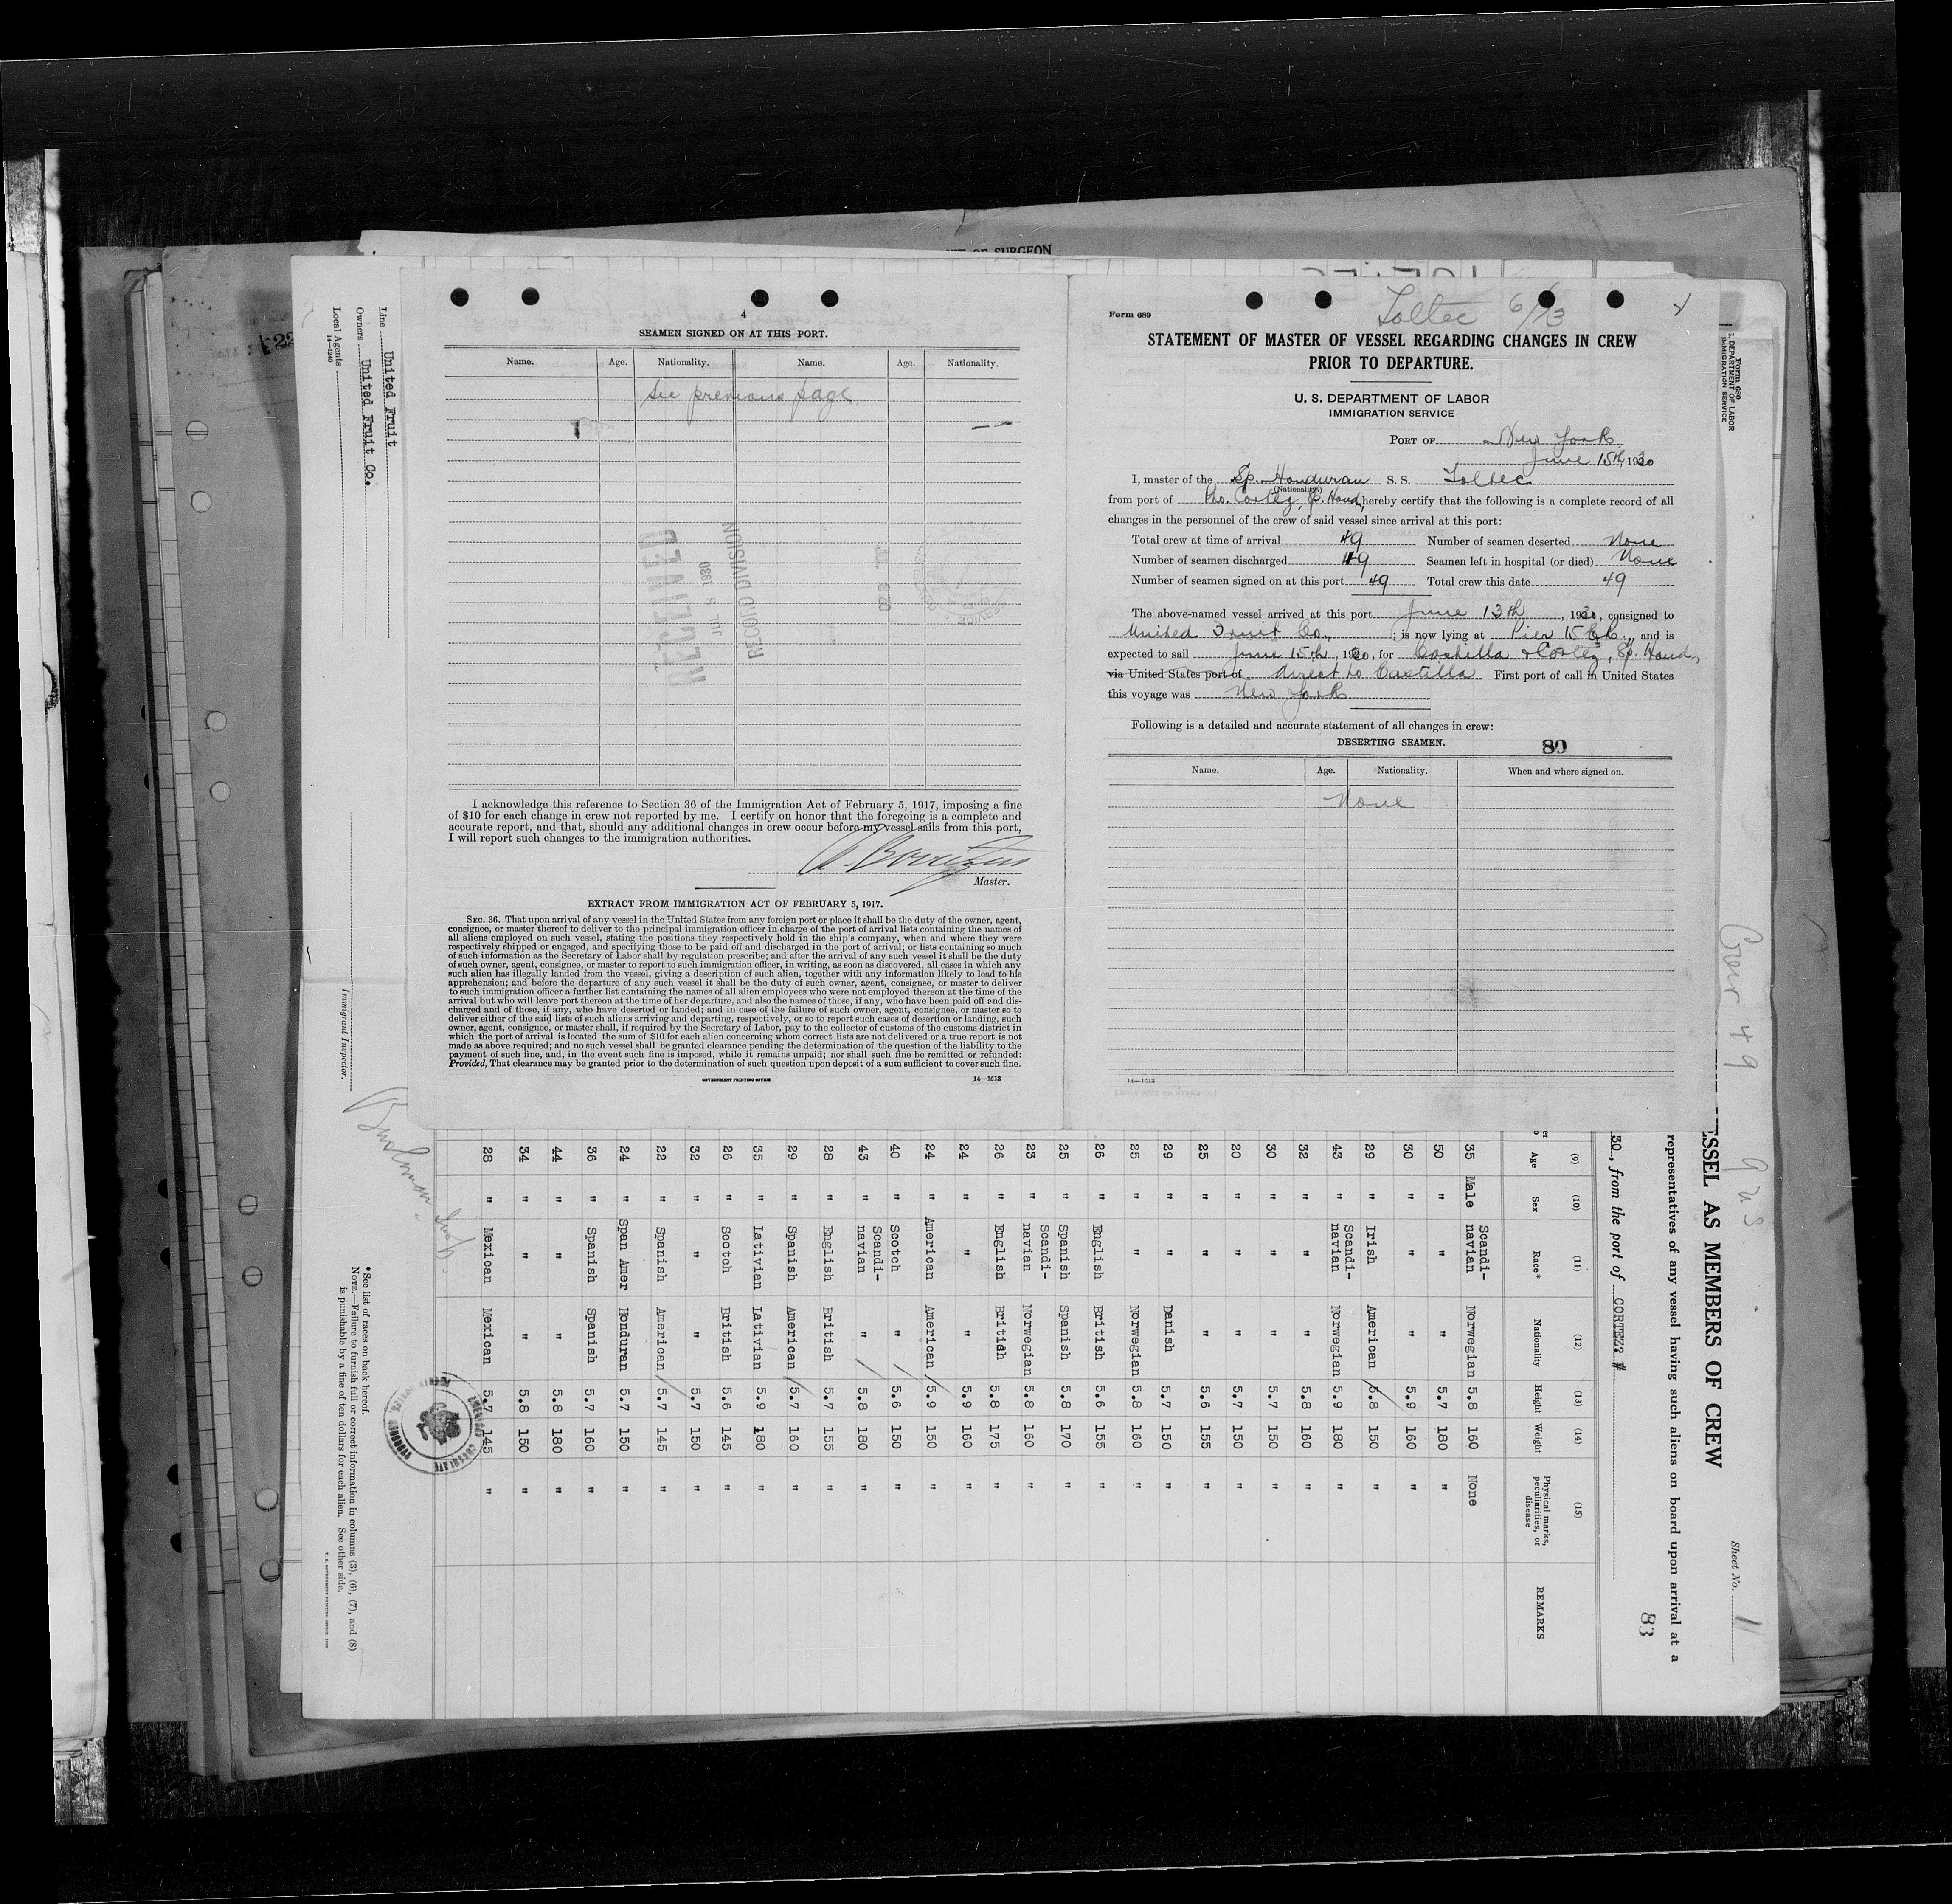 T OF SURGEON
4
SEAMEN SIGNED ON AT THIS PORT.
Name. Age. Nationality. Name. Age. Nationality.
See previous page
RECEIVED
JUL 8 1930
RECORD DIVISION
I acknowledge this reference to Section 36 of the Immigration Act of February 5, 1917, imposing a fine
of $10 for each change in crew not reported by me. I certify on honor that the foregoing is a complete and
accurate report, and that, should any additional changes in crew occur before my vessel sails from this port,
I will report such changes to the immigration authorities.
Master.
EXTRACT FROM IMMIGRATION ACT OF FEBRUARY 5, 1917.
SEC. 36. That upon arrival of any vessel in the United States from any foreign port or place it shall be the duty of the owner, agent,
consignee, or master thereof to deliver to the principal immigration officer in charge of the port of arrival lists containing the names of
all aliens employed on such vessel, stating the positions they respectively hold in the ship's company, when and where they were
respectively shipped or engaged, and specifying those to be paid off and discharged in the port of arrival; or lists containing so much
of such information as the Secretary of Labor shall by regulation prescribe; and after the arrival of any such vessel it shall be the duty
of such owner, agent, consignee, or master to report to such immigration officer, in writing, as soon as discovered, all cases in which any
such alien has illegally landed from the vessel, giving a description of such alien, together with any information likely to lead to his
apprehension; and before the departure of any such vessel it shall be the duty of such owner, agent, consignee, or master to deliver
to such immigration officer a further list containing the names of all alien employees who were not employed thereon at the time of the
arrival but who will leave port thereon at the time of her departure, and also the names of those, if any, who have been paid off and dis-
charged and of those, if any, who have deserted or landed; and in case of the failure of such owner, agent, consignee, or master so to
deliver either of the said lists of such aliens arriving and departing, respectively, or so to report such cases of desertion or landing, such
owner, agent, consignee, or master shall, if required by the Secretary of Labor, pay to the collector of customs of the customs district in
which the port of arrival is located the sum of $10 for each alien concerning whom correct lists are not delivered or a true report is not
made as above required; and no such vessel shall be granted clearance pending the determination of the question of the liability to the
payment of such fine, and, in the event such fine is imposed, while it remains unpaid; nor shall such fine be remitted or refunded:
Provided, That clearance may be granted prior to the determination of such question upon deposit of a sum sufficient to cover such fine.
GOVERNMENT PRINTING OFFICE 14—1613
Form 689
Toltec 6/13
STATEMENT OF MASTER OF VESSEL REGARDING CHANGES IN CREW
PRIOR TO DEPARTURE.
U. S. DEPARTMENT OF LABOR
IMMIGRATION SERVICE
PORT OF New York
June 15th, 1930
I, master of the Sp. Honduran S. S. Toltec
(Nationality)
from port of Pto. Cortez, S. Hond, hereby certify that the following is a complete record of all
changes in the personnel of the crew of said vessel since arrival at this port:
Total crew at time of arrival 49 Number of seamen deserted None
Number of seamen discharged 49 Seamen left in hospital (or died) None
Number of seamen signed on at this port 49 Total crew this date 49
The above-named vessel arrived at this port June 13th, 1930, consigned to
United Fruit Co., ; is now lying at Pier 15 E.R., and is
expected to sail June 15th, 1930, for Castilla & Cortez, Sp. Hond,
via United States port of direct to Castilla First port of call in United States
this voyage was New York
Following is a detailed and accurate statement of all changes in crew:
DESERTING SEAMEN. 80
Name. Age. Nationality. When and where signed on.
None
14—1613
Form 680
U. S. DEPARTMENT OF LABOR
IMMIGRATION SERVICE
Crew 49 9 US.
Sheet No. 1
ESSEL AS MEMBERS OF CREW
representatives of any vessel having such aliens on board upon arrival at a
83
30, from the port of CORTEZ
(9) (10) (11) (12) (13) (14) (15)
Age Sex Race* Nationality Height Weight Physical marks, peculiarities, or disease REMARKS
35 Male Scandi-navian Norwegian 5.8 160 None
50 " " " 5.7 180 "
30 " " " 5.9 160 "
29 " Irish American 5.8 150 "
43 " Scandi-navian Norwegian 5.9 180 "
32 " " " 5.8 160 "
30 " " " 5.7 150 "
20 " " " 5.7 150 "
25 " " " 5.6 155 "
29 " " Danish 5.7 150 "
25 " " Norwegian 5.8 160 "
26 " English British 5.6 155 "
25 " Spanish Spanish 5.8 170 "
23 " Scandi-navian Norwegian 5.8 160 "
26 " English British 5.8 175 "
24 " " " 5.9 160 "
24 " American American 5.9 150 "
40 " Scotch " 5.6 150 "
43 " Scandi-navian " 5.8 180 "
28 " English British 5.7 155 "
29 " Spanish American 5.7 160 "
35 " Lativian Lativian 5.9 180 "
26 " Scotch British 5.6 145 "
32 " " " 5.7 150 "
22 " Spanish American 5.7 145 "
24 " Span Amer Honduran 5.7 150 "
36 " Spanish Spanish 5.7 160 "
44 " " " 5.8 180 "
34 " " " 5.8 150 "
28 " Mexican Mexican 5.7 145 "
Line United Fruit
Owners United Fruit Co.
Local Agents
14—1240
Immigrant Inspector.
*See list of races on back hereof.
NOTE.—Failure to furnish full or correct information in columns (3), (6), (7), and (8)
is punishable by a fine of ten dollars for each alien. See other side.
AMERICAN CONSULATE